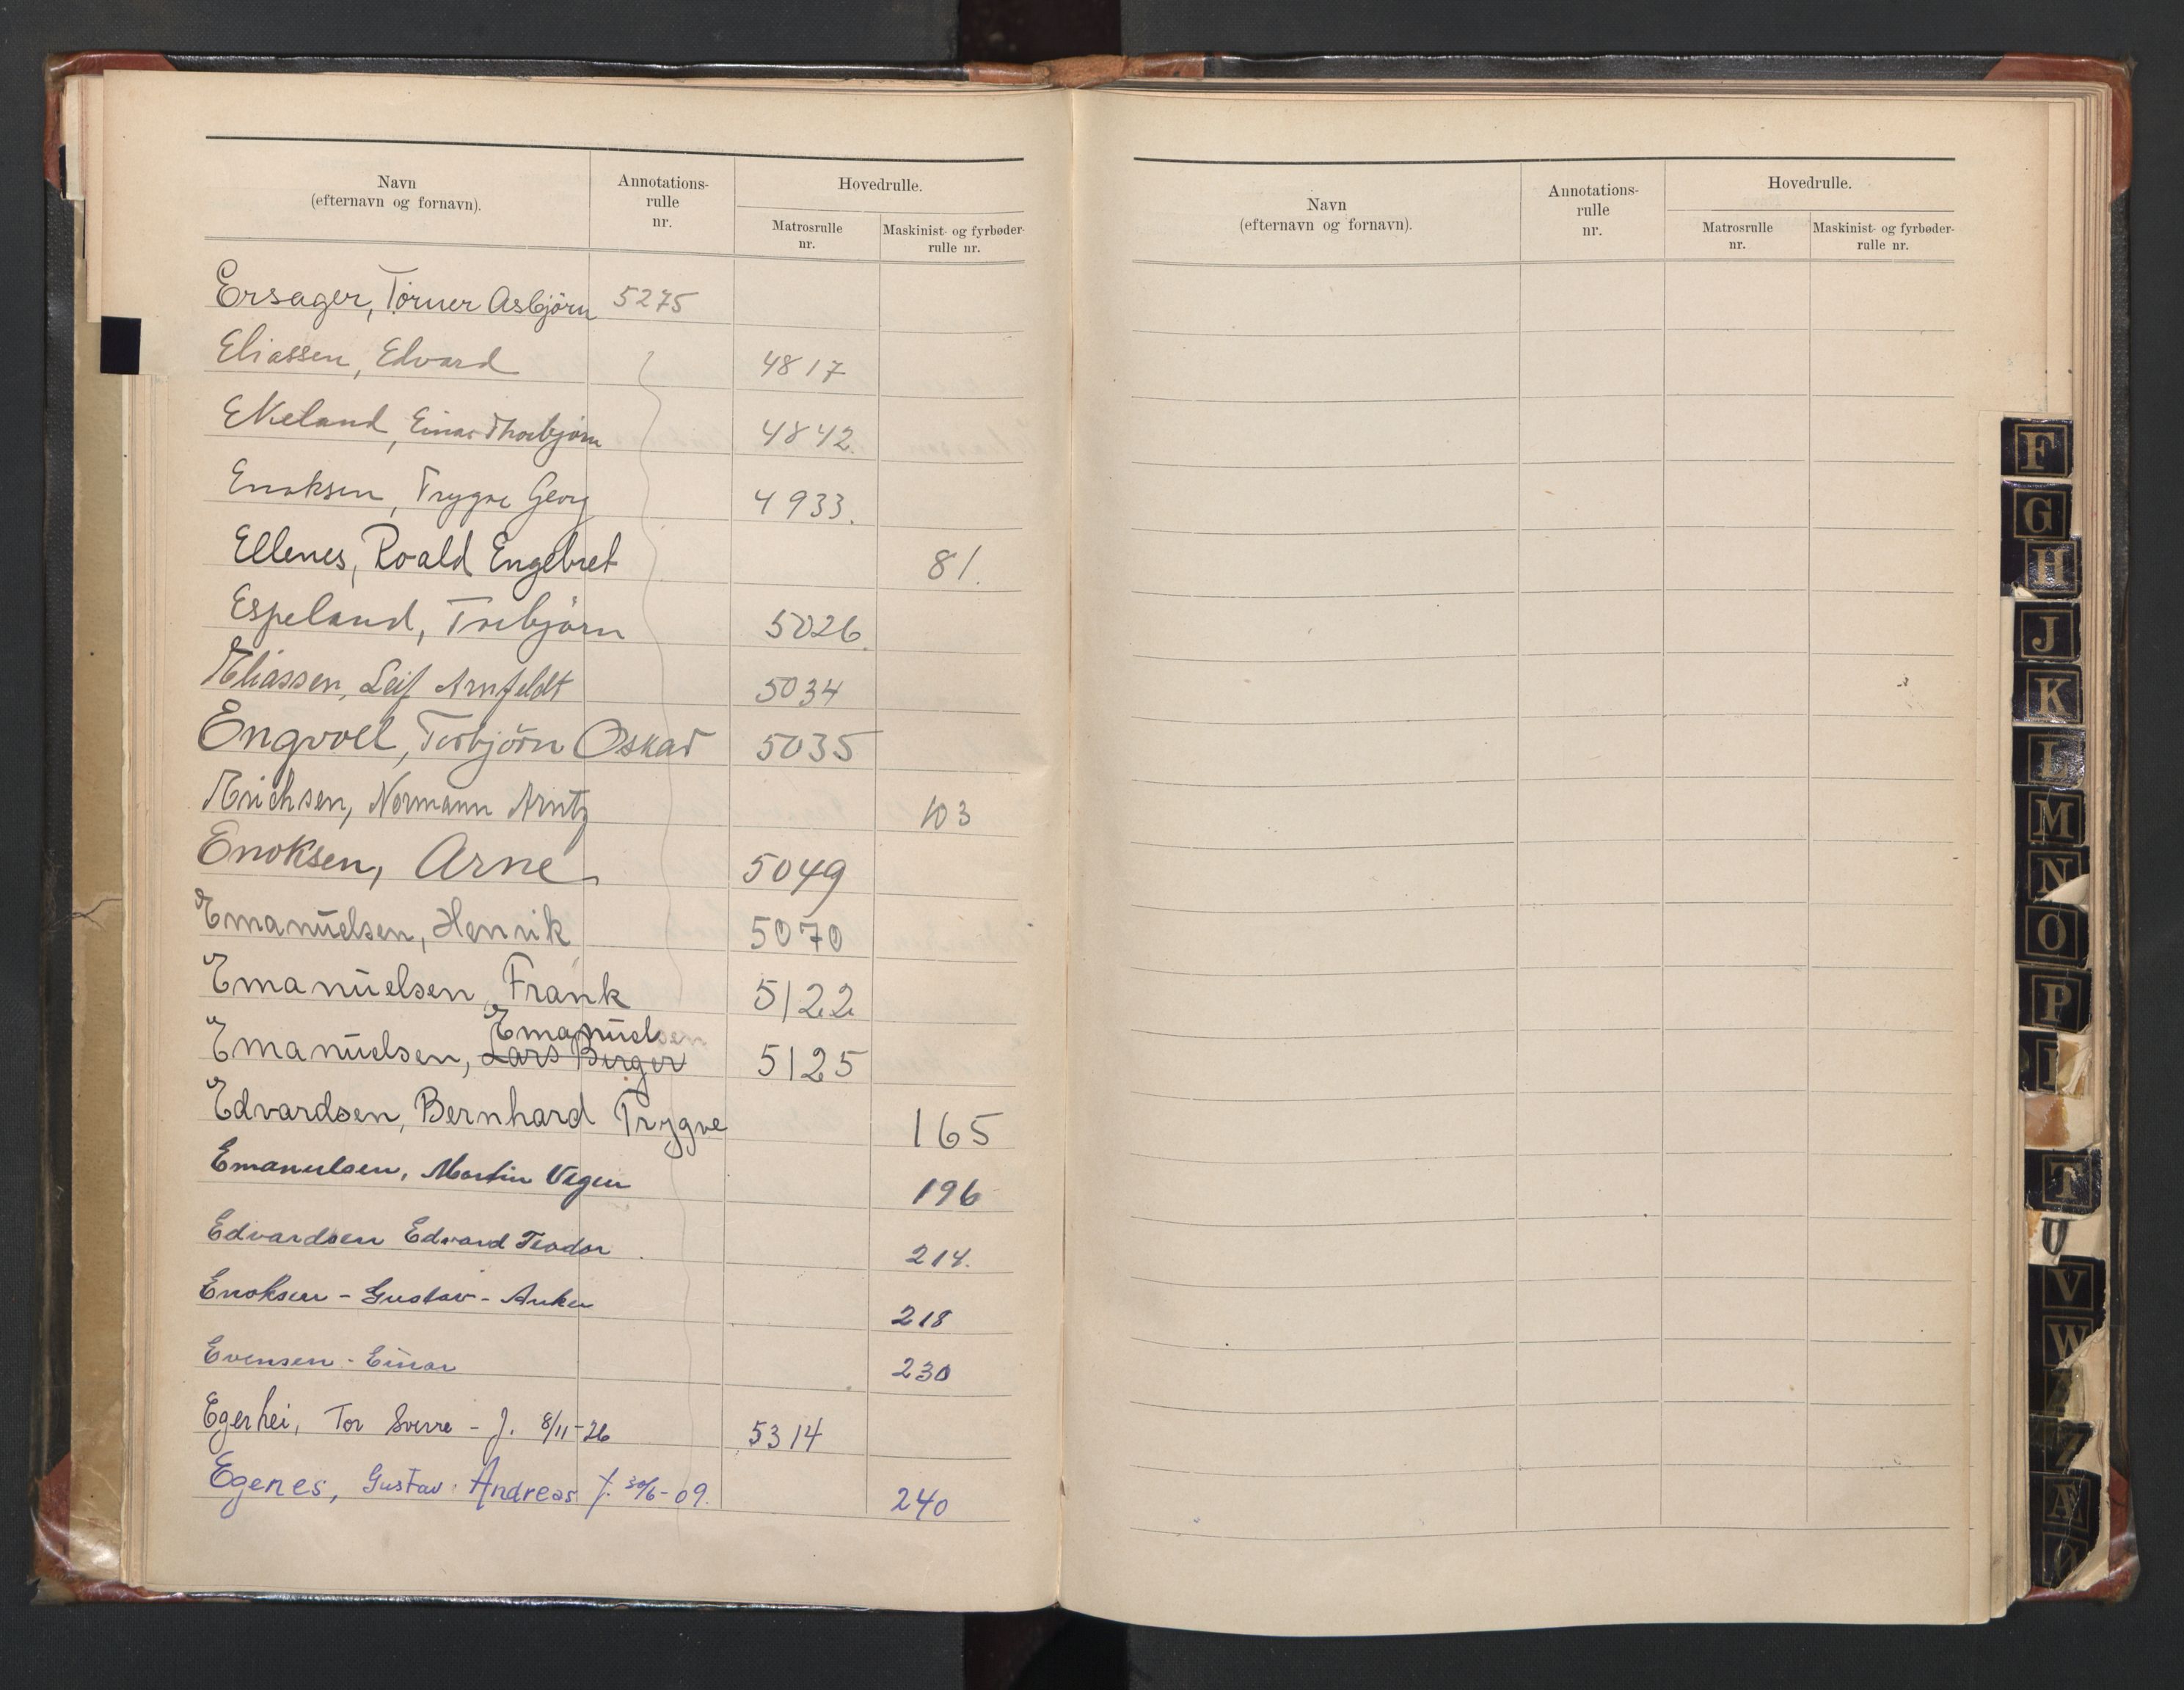 Navn
(efternavn og fornavn).
Annotations-
rulle
nr.
Hovedrulle.
Matrosrulle
nr.
Maskinist- og fyrbøder-
rulle nr.
Ersager, Törner Asbjörn 5275
Eliassen, Edvard 4817
Ekeland, Einar Thorbjörn 4842.
Enoksen, Trygve Georg 4933.
Ellenes, Roald Engebret 81.
Espeland, Torbjörn 5026.
Eliassen, Leif Arnfeldt 5034
Engvoll, Torbjörn Oskar 5035
Erichsen, Normann Arntz 103
Enoksen, Arne 5049
Emanuelsen, Henrik 5070
Emanuelsen, Frank 5122
Emanuel
Emanuelsen, Lars Birger 5125
Edvardsen, Bernhard Trygve 165
Emanuelsen, Martin 196
Edvardsen Edvard Teodor 214.
Enoksen - Gustav - Anker 218
Evensen - Einar 230
Egerhei, Tor Sverre - f. 8/11-26 5314
Egenes, Gustav Andreas f. 30/6-09. 240
Navn
(efternavn og fornavn).
Annotations-
rulle
nr.
Hovedrulle.
Matrosrulle
nr.
Maskinist- og fyrbøder-
rulle nr.
F
G
H
J
K
L
M
N
O
P
T
U
V
W
Z
Æ
Ø